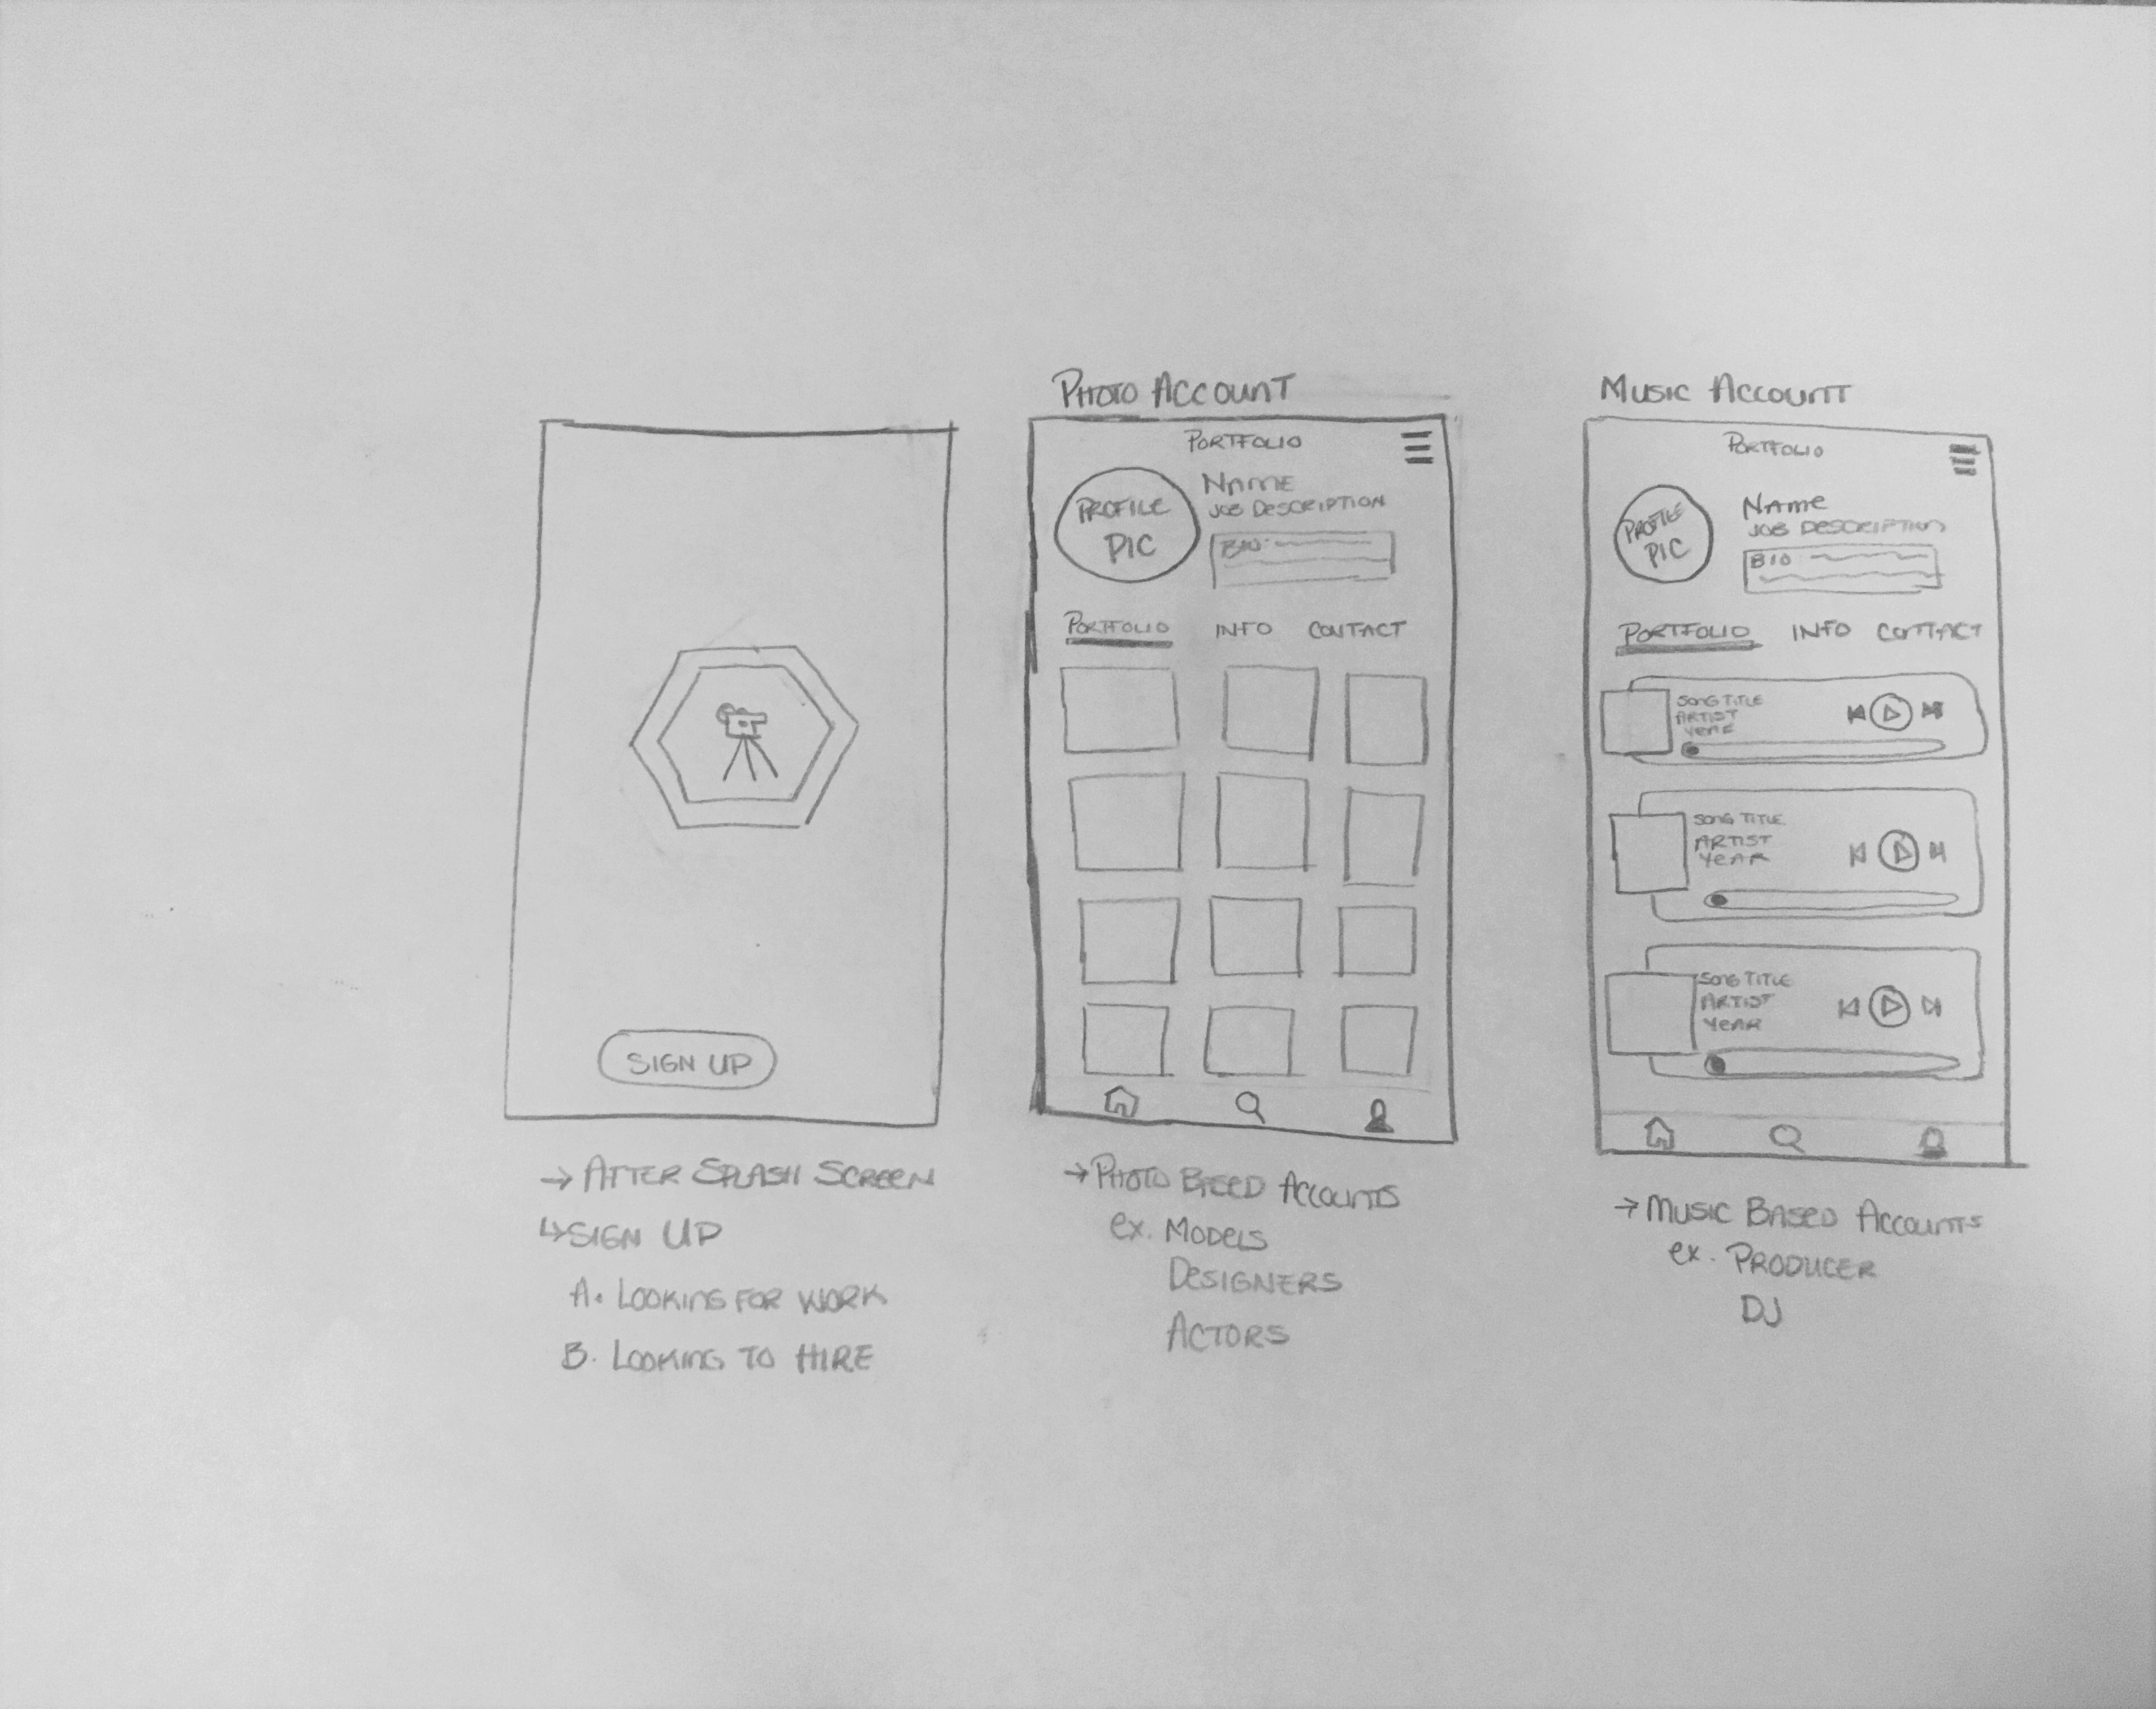 SIGN UP
→ AFTER SPLASH SCREEN
↳ SIGN UP
A. LOOKING FOR WORK
B. LOOKING TO HIRE
PHOTO ACCOUNT
PORTFOLIO
PROFILE PIC
NAME
JOB DESCRIPTION
BIO
PORTFOLIO INFO CONTACT
→ PHOTO BASED ACCOUNTS
ex. MODELS
DESIGNERS
ACTORS
MUSIC ACCOUNT
PORTFOLIO
PROFILE PIC
NAME
JOB DESCRIPTION
BIO
PORTFOLIO INFO CONTACT
SONG TITLE
ARTIST
YEAR
SONG TITLE
ARTIST
YEAR
SONG TITLE
ARTIST
YEAR
→ MUSIC BASED ACCOUNTS
ex. PRODUCER
DJ